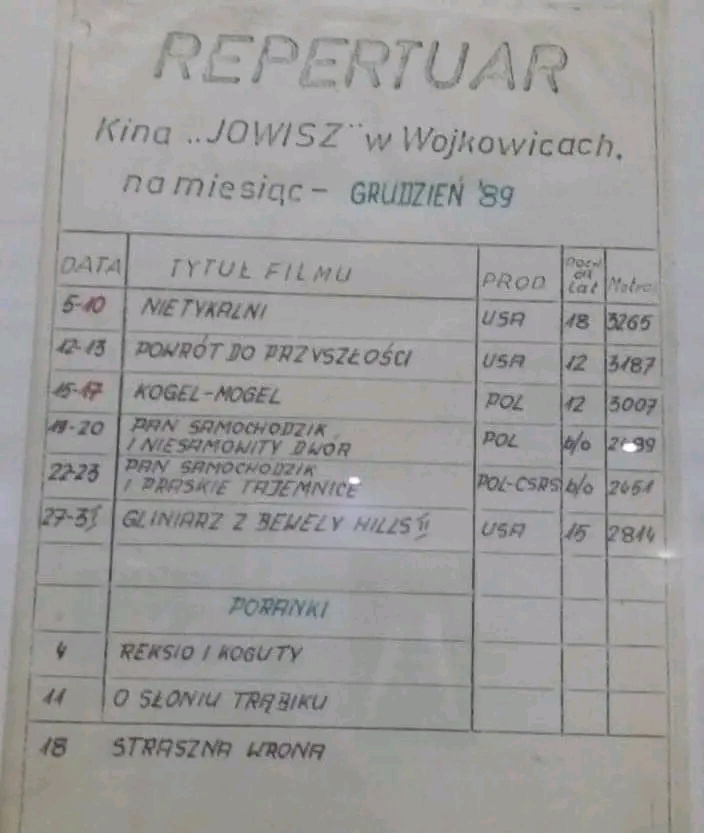 REPERTUAR
Kina „JOWISZ" w Wojkowicach,
na miesiąc - GRUDZIEŃ '89
DATA TYTUŁ FILMU PROD Dozw od lat Metraż
5-10 NIETYKALNI USA 18 3265
12-13 POWRÓT DO PRZYSZŁOŚCI USA 12 3187
15-17 KOGEL-MOGEL POL 12 3007
19-20 PAN SAMOCHODZIK
I NIESAMOWITY DWÓR POL b/o
22-23 PAN SAMOCHODZIK
I PRASKIE TAJEMNICE POL-CSRS b/o 2451
27-31 GLINIARZ Z BEWELY HILLS II USA 15 2814
PORANKI
4 REKSIO I KOGUTY
11 O SŁONIU TRĄBIKU
18 STRASZNA WRONA